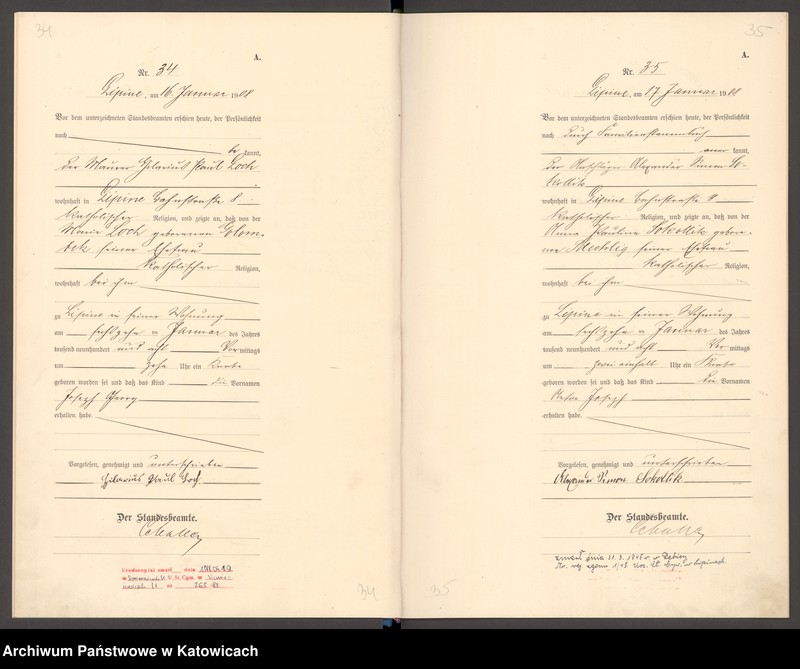 34
A.
Nr. 34
Lipine, am 16. Januar 1908
Vor dem unterzeichneten Standesbeamten erschien heute, der Persönlichkeit
nach
be kannt,
der Maurer Hilarius Paul Loch
wohnhaft in Lipine Bahnstraße 8
katholischer Religion, und zeigte an, daß von der
Maria Loch geborenen Golom-
bek seiner Ehefrau
katholischer Religion,
wohnhaft bei ihm
zu Lipine in seiner Wohnung
am sechszehn n Januar des Jahres
tausend neunhundert und acht Vor mittags
um zehn Uhr ein Knabe
geboren worden sei und daß das Kind die Vornamen
Joseph Georg
erhalten habe.
Vorgelesen, genehmigt und unterschrieben
Hilarius Paul Loch
Der Standesbeamte.
34
35
A.
Nr. 35
Lipine, am 17. Januar 1908
Vor dem unterzeichneten Standesbeamten erschien heute, der Persönlichkeit
nach durch Familienstammbuch
aner kannt,
der Alexander Simon So-
kollik
wohnhaft in Lipine Bahnstraße 9
katholischer Religion, und zeigte an, daß von der
Anna Pauline Sokollik gebore-
nen seiner Ehefrau
katholischer Religion,
wohnhaft bei ihm
zu Lipine in seiner Wohnung
am sechszehn n Januar des Jahres
tausend neunhundert und acht Vor mittags
um zwei einhalb Uhr ein Knabe
geboren worden sei und daß das Kind die Vornamen
Joseph
erhalten habe.
Vorgelesen, genehmigt und unterschrieben
Alexander Simon Sokollik
Der Standesbeamte.
zmarł dnia
35
Archiwum Państwowe w Katowicach